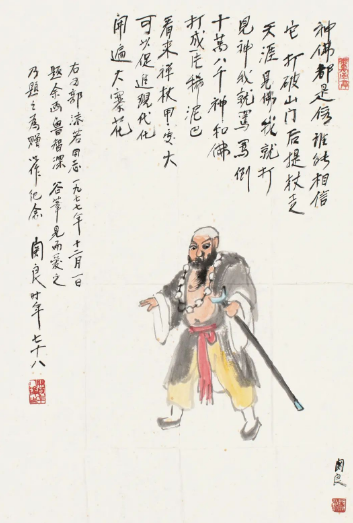 神佛都是假 谁能相信
它 打破山门后提杖走
天涯 见佛我就打
见神我就骂 骂倒
十万八千神和佛
打成片稀泥巴
看来禅杖用处大
可以促进现代化
开遍大寨花
右乃郭沫若同志一九七七年十二月一日
题余画鲁智深 见而爱之
乃题之为赠 作纪念 关良时年七十八
关良